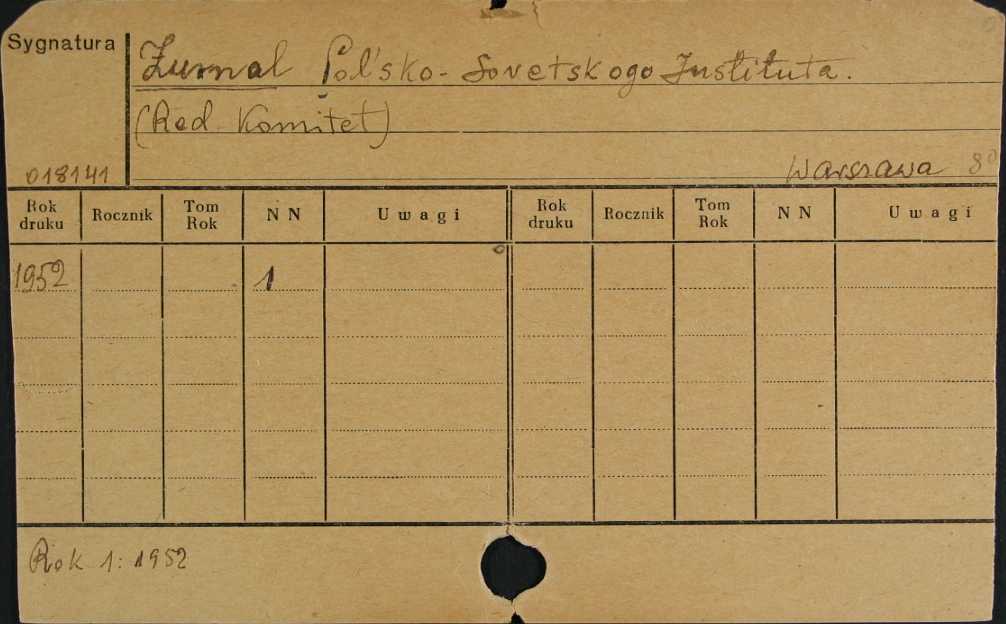 Sygnatura
Žurnal Pol'sko-Sovetskogo Instituta.
(Red. Komitet)
018141
Warszawa 8°
Rok druku Rocznik Tom Rok N N Uwagi Rok druku Rocznik Tom Rok N N Uwagi
1952 1
Rok 1: 1952